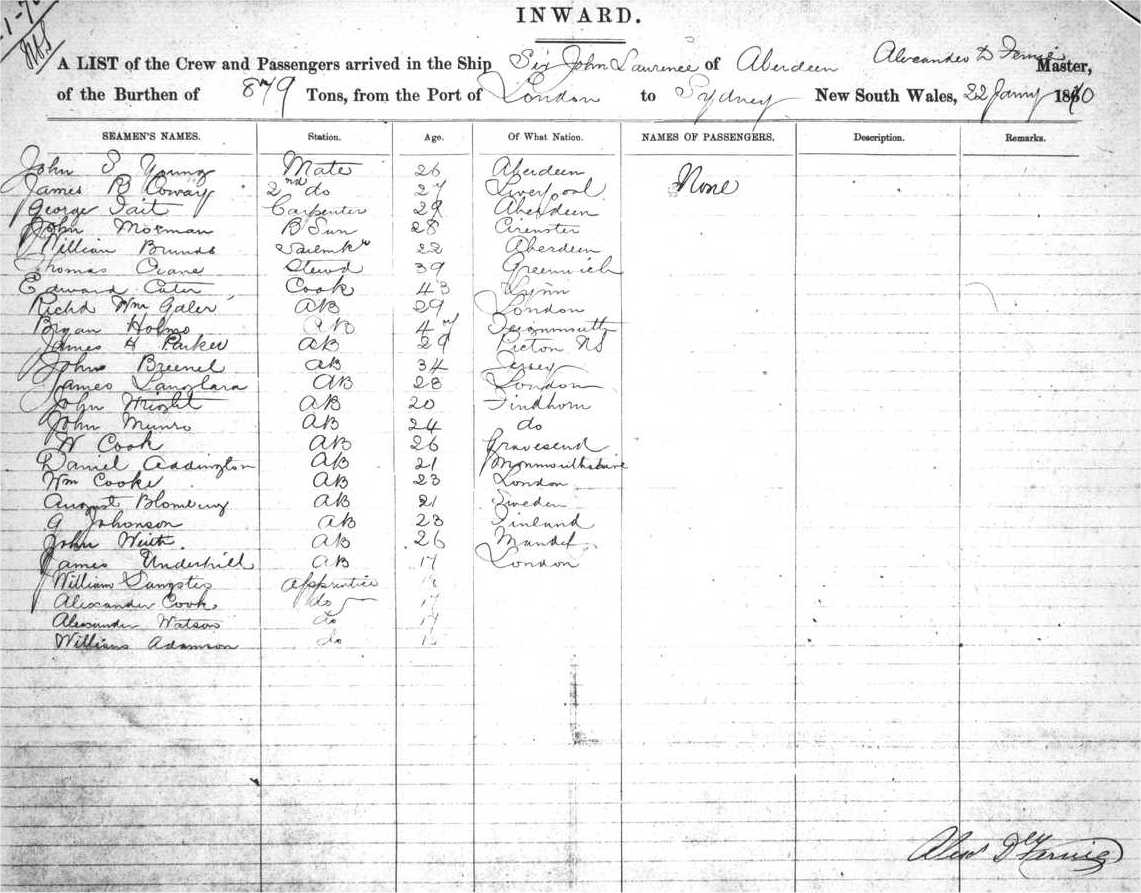 INWARD.
A LIST of the Crew and Passengers arrived in the Ship Sir John Lawrence of Aberdeen Alexander D Fernie Master,
of the Burthen of 879 Tons, from the Port of London to Sydney New South Wales, 22 Jany 1870
SEAMEN'S NAMES. Station. Age. Of What Nation. NAMES OF PASSENGERS. Description. Remarks.
John S Young Mate 26 Aberdeen None
James B Coway 2nd do 27 Liverpool
George Tait Carpenter 29 Aberdeen
John Morman B Sun 28 Cirenster
William Brunds Sailmkr 22 Aberdeen
Thomas Crane Stewd 39 Greenwich
Edward Cater Cook 43 Lynn
Richd Wm Galer AB 29 London
Bryan Holms AB 47
James H Parker AB 29 Picton NS
John Breenel AB 34 Jersey
James Langlara AB 28 London
John Wright AB 20 Findhorn
John Munro AB 24 do
W Cook AB 26 Gravesend
Daniel Addington AB 21 Monmouthshire
Wm Cooke AB 23 London
August Blomberg AB 21 Sweden
G Johonson AB 23 Finland
John Weith AB 26
James Underhill AB 17 London
William Sangster Apprentice
Alexander Cook do 17
Alexander Watson do
William Adamson do